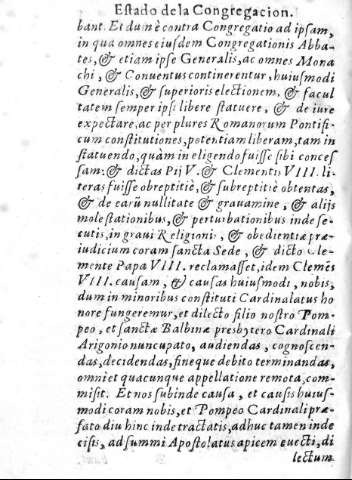 Estado de la Congregacion.
bant. Et dum è contra Congregatio ad ipsam,
in qua omnes eiusdem Congregationis Abba-
tes, & etiam ipse Generalis, ac omnes Mona
chi, & Conuentus continerentur, huiusmodi
Generalis, & superioris electionem, & facul
tatem semper ipsi libere statuere, & de iure
expectare, ac per plures Romanorum Pontifi-
cum constitutiones, potentiam liberam, tam in
statuendo, quàm in eligendo fuisse sibi conces
sam: & dictas Pij V. & Clementis VIII. li-
teras fuisse obreptitiè, & subreptitiè obtentas,
& de earũ nullitate & grauamine, & alijs
molestationibus, & perturbationibus inde se-
cutis, in graui Religionis, & obedientiæ præ-
iudicium coram sancta Sede, & dicto Cle-
mente Papa VIII. reclamasset, idem Clemẽs
VIII. causam, & causas huiusmodi, nobis,
dum in minoribus constituti Cardinalatus ho
nore fungeremur, et dilecto filio nostro Pom-
peo, et sanctæ Balbinæ presbytero Cardinali
Arigonio nuncupato, audiendas, cognoscen-
das, decidendas, fineque debito terminandas,
omni et quacunque appellatione remota, com-
misit. Et nos subinde causa, et causis huius-
modi coram nobis, et Pompeo Cardinali præ-
fato diu hinc inde tractatis, adhuc tamen inde
cisis, ad summi Apostolatus apicem euecti, di
lectum